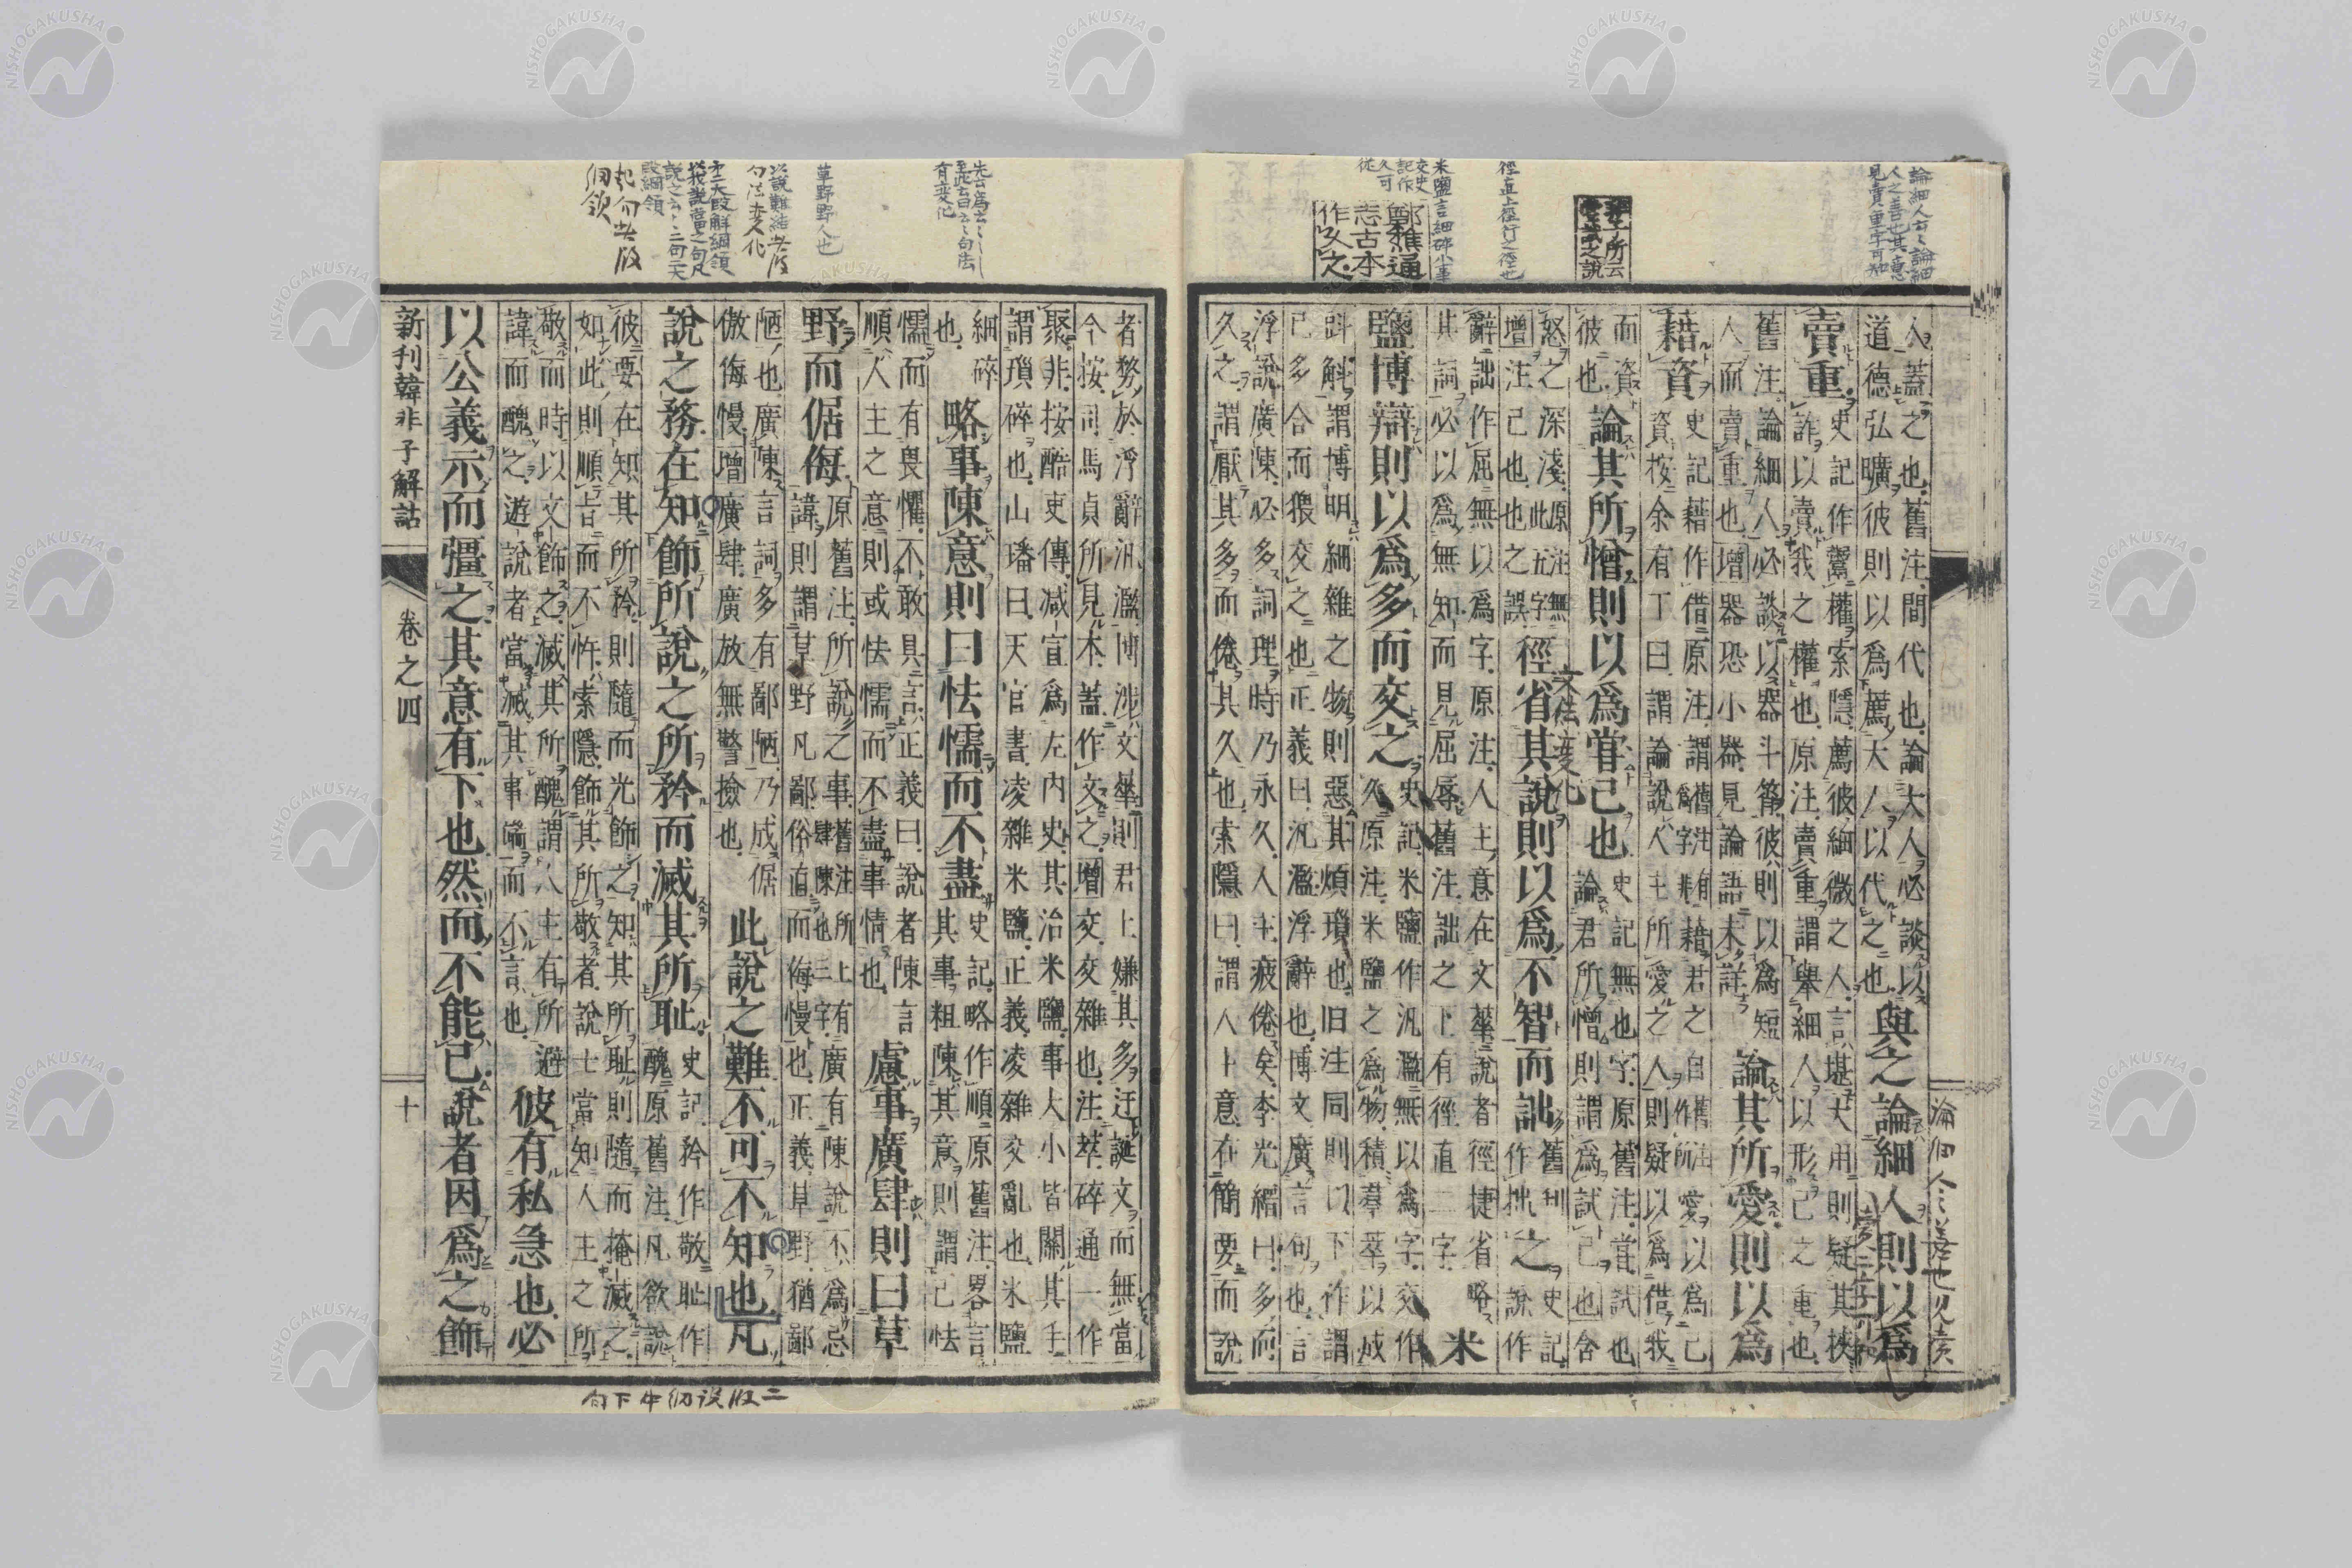 人蓋之也舊注間代也論大人必談以
道德弘曠彼則以爲薦大人以代之也
與之論細人則以爲
賣重
史記作鬻權索隱薦彼細微之人言堪大用則疑其挾
詐以賣我之權也原注賣重謂舉細人以形己之重也
舊注論細人必談以器斗筲彼則以爲短
人而賣重也增器恐小器見論語未詳
論其所愛則以爲
藉資
史記藉作借原注謂
資按余有丁曰謂論說人主所愛之人則疑以爲借我
而資
彼也
論其所憎則以爲甞己也
史記無也字原舊注當試也
論君所憎則謂爲試己也含
怒之深淺此原注五字無
增注己也也之誤
徑省其說則以爲不智而詘之
舊刊作拙
史記說作
辭詘作屈無以爲字原注人主意在文華說者徑捷省略
其詞必以爲無知而見屈辱舊注詘之上有徑直二字
米
鹽博辯則以爲多而交之
史記米鹽作汎濫無以爲字交作
久原注米鹽之爲物積羣萃以成
斟斛謂博明細雜之物則惡其煩瑣也旧注同則以下作謂
己多合而猥交之也正義曰汎濫浮辭也博文廣言句也言
浮說廣陳必多詞理時乃永久人主疲倦矣李光縉曰多而
久之謂厭其多而倦其久也索隱曰謂人主意在簡要而說
者務於浮辭汎濫博涉文華則君上嫌其多迂誕文而無當
今按司馬貞所見本蓋作文之增交交雜也注萃碎通一作
聚非按酷吏傳减宣爲左內史其治米鹽事大小皆關其手
謂瑣碎也山璠曰天官書凌雜米鹽正義凌雜交亂也米鹽
細碎
也
略事陳意則曰怯懦而不盡
史記略作順原舊注畧言
其事粗陳其意則謂己怯
懦而有畏懼不敢具言正義曰說者陳言
順人主之意則或怯懦而不盡事情也
慮事廣肆則曰草
野而倨侮
原舊注所說之事
舊注所上有
肆陳也三字
廣有陳說不爲忌
諱則謂草野凡鄙俗直而侮慢也正義草野猶鄙
陋也廣陳言詞多有鄙陋乃成倨
傲侮慢增廣肆廣放無警撿也
此說之難不可不知也凡
說之務在知飾所說之所矜而滅其所耻
史記矜作敬耻作
醜原舊注凡欲說
彼要在知其所矜則隨而光飾之知其所耻則隨而掩滅之
如此則順旨而不忤索隱飾其所敬者說士當知人主之所
敬而時以文飾之滅其所醜謂人主有所避
諱而醜之遊說者當滅其事端而不言也
彼有私急也必
以公義示而彊之其意有下也然而不能已說者因爲之飾
新刊韓非子解詁
卷之四
十
論細人云々論細
人之善也其意
見賣重字可知
徑直上徑行之徑也
米鹽言細碎小事
交史
記作
久可
從
鄭樵通
志古本
作叉之
先云爲云々
至此云曰云々句法
有変化
草野野人也
文法変化
二段設綱中下句